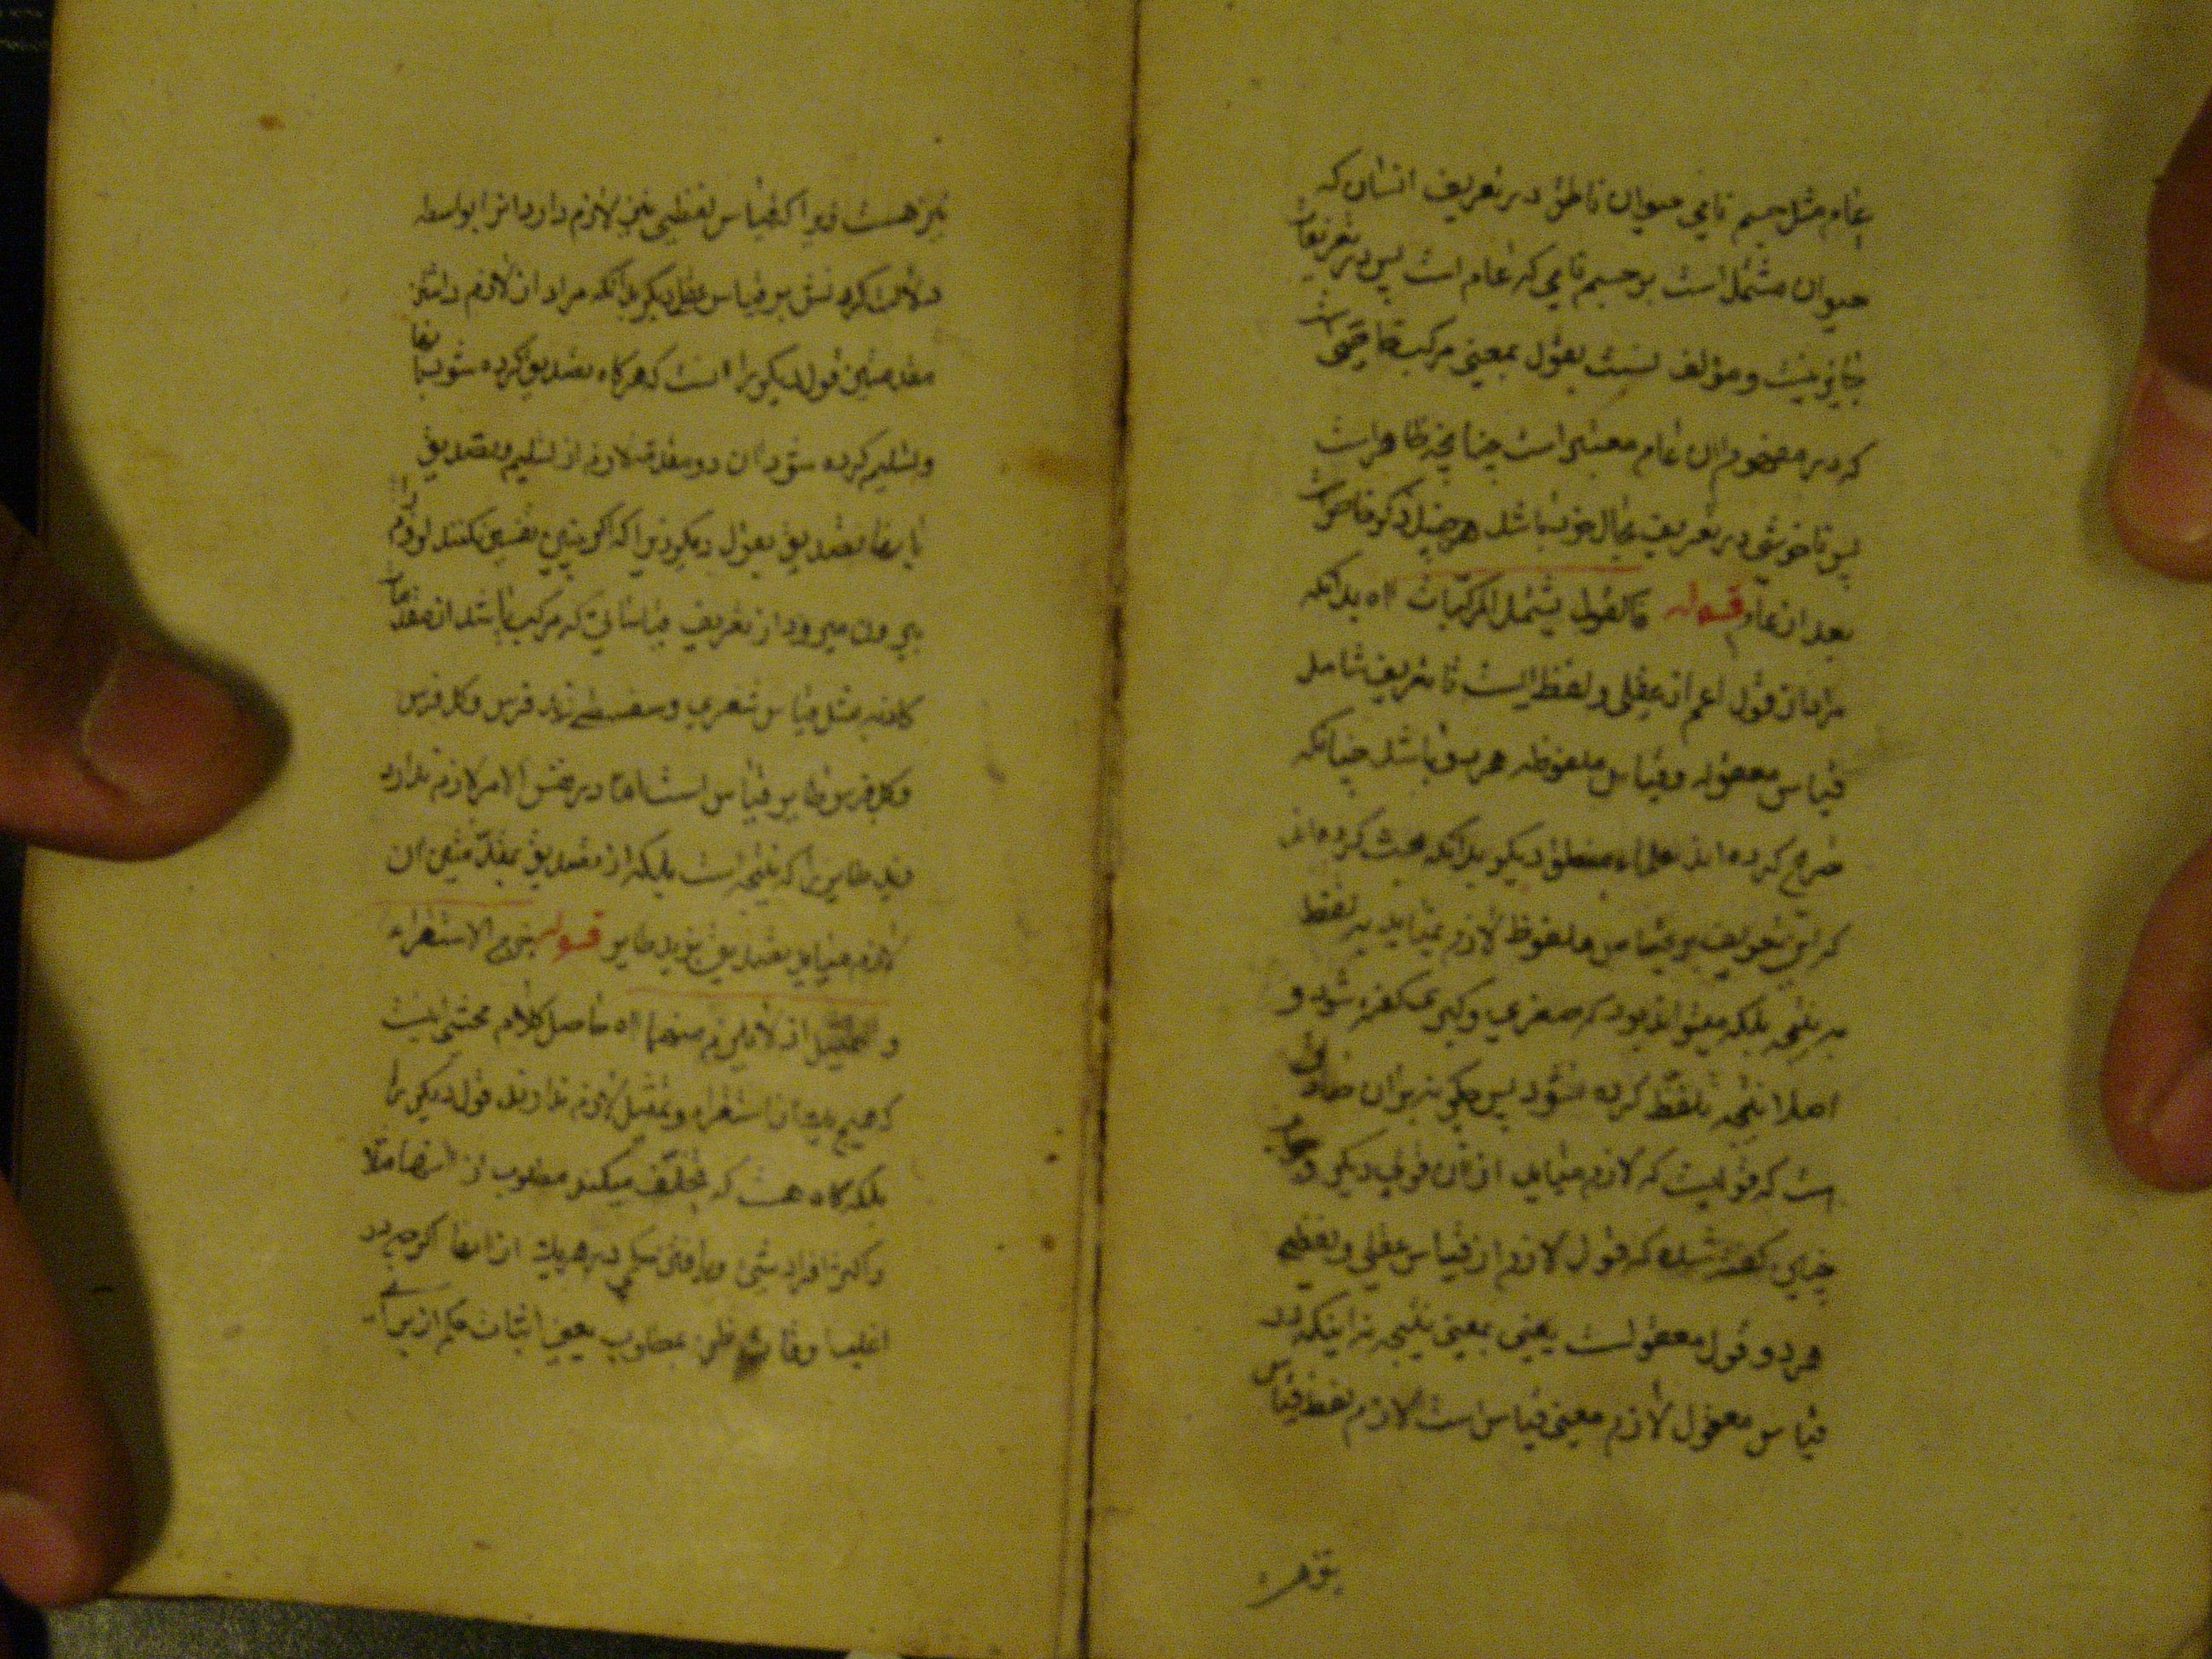 عام مثل جسم نامی حیوان ناطق در تعریف انسان که
حیوان مشتمل است بر جسم نامی که عام است پس در تعریفات
و مؤلف نسبت بقول بمعنی مرکب خاص است
که در مفهوم آن عام معتبر است چنانچه ظاهر است
پس ناخوشی در تعریف بحال خود باشد هر چند ذکر خاص است
بعد از عام قوله فالقول یشمل المرکبات اه بدانکه
مراد از قول اعم از عقلی و لفظی است تا تعریف شامل
قیاس معقوله و قیاس ملفوظه هر دو باشد چنانکه
صرح کرده اند علماء منطق دیگر بدانکه بحث کرده اند
که این تعریف بر قیاس ملفوظ لازم نمیاید نه لفظ
نه نتیجه بلکه میتواند بود که صغری و کبری گفته شود و
اصلا نتیجه تلفظ کرده نشود پس چگونه بر آن صادق
است که قولیست که لازم میاید از آن قولی دیگر و جواب
چنین گفته شده که قول لازم از قیاس عقلی و لفظی
هر دو قول معقولست یعنی بمعنی نتیجه نه اینکه در
قیاس معقول لازم معنی قیاس است لازم لفظ قیاس
نیز هست زیرا که قیاس لفظی نیز لازم دارد انرا بواسطه
دلالت کردنش بر قیاس عقلی دیگر بدانکه مراد از لازم داشتن
مقدمتین قول دیگر را انست که هرگاه تصدیق کرده شود بانها
و تسلیم کرده شود آن دو مقدمه لازم از تسلیم و تصدیق
بانها تصدیق بقول دیگر زیرا که اگر چنین تفسیر نکنند لزوم را
بیرون میرود از تعریف قیاساتی که مرکب باشد از مقدمات
کاذبه مثل قیاس شعری و سفسطی زید فرس و کل فرس
و کل فرس طایر قیاس است اما در نفس الامر لازم ندارد
زید طایر را که نتیجه است بلکه از تصدیق بمقدمتین آن
لازم میاید تصدیق بزید طایر قوله یخرج الاستقراء
و التمثیل اذ لا یلزم منهما اه حاصل کلام محشی اینست
که هیچ یک از استقراء و تمثیل لازم ندارند قول دیگر را
بلکه گاه هست که تخلف میکند مطلوب از انها مثلا
و اکثر افراد شیئ در هریک از انها اگر چه در
اغلب اوقات ظن بمطلوب یعنی اثبات حکم از برای